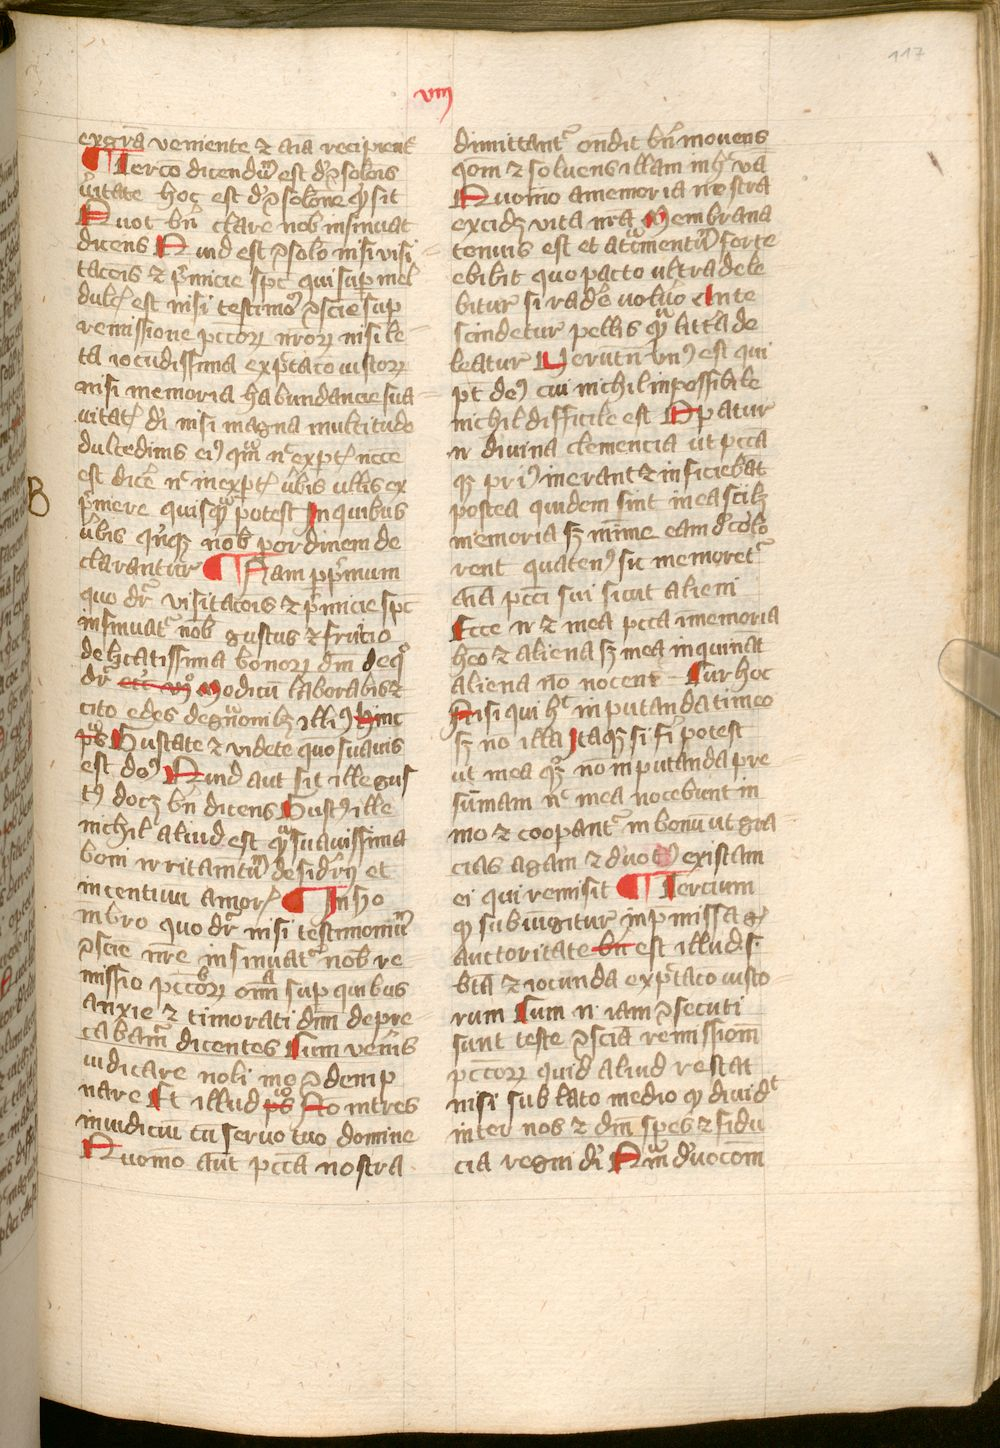 117
viij
ex gr̄a veniente ⁊ aīa recipient̄
¶ Terco dicendū est d' ꝯsolōis
v̄itate hoc est d' ꝯsolōne qͥ sit
Quot bn̄ clare nob insinuat
dicens Quid est ꝯsolo nisi visi
tacōis ⁊ pͥmicie spc̄ qui suꝑ mel
dulcꝭ est nisi testimoͦ ꝯscie sup
remissione pccoꝝ nr̄oꝝ nisi le
ta iocūdissima exp̄taco iustoꝝ
nisi memoria habundancie sua
vitatꝭ di nisi magna multitudo
dulcedinis eiꝰ qm̄ nͨ exp̄tꝭ nccē
est dice' nͨ inexp̄tꝭ v̄bis ullis ex
pͥmere quisqͣ potest In quibus
v̄bis qͥnqꝫ nob ꝑ ordinem de
clarantur ¶ Nam ꝑ pͥmum
quo dr̄ visitacōis ⁊ pͥmicie spc̄
insinuatᷣ nob gustus ⁊ fruico
delicatissima bonoꝝ dm̄ de qͦ
dr̄ etc̄ vjͦ Modicū laborabis ⁊
cito edes de gn̄omibꝫ illiꝰ hinc
pͣs Gustate ⁊ videte quo suauis
est doꝰ Quid aut sit ille gus
tꝰ docꝫ bn̄ dicens Gustꝰ ille
nichil aliud est qͣ suauissima
boni irritamtū desidrij et
incentiuu amorꝭ ¶ In ho
mbro quo dr̄ nisi testimoniū
ꝯscie nr̄e insinuatᷣ nob re
missio pccoꝝ om̄ sup quibus
anxie ⁊ timorati dm̄ depre
cabamᷣ dicentes Cum ven̄is
iudicare noli me ꝯdemp
nare Et illud pͣs No intres
in iudiciu cu seruo tuo domine
Quomo aut pccā nostra
dimittantᷣ ondit bn̄ mouens
qōm ⁊ soluens illam in hͨ va
Quomo a memoria nostra
excidꝫ vita nr̄a Membrana
tenuis est et atͣmentū forte
ebibit quo pacto ultra dele
bitur si rade' voluͦo Ante
scindetur pellis qͣ littͣa de
leatur Uerutn̄ vnꝰ est qui
pt̄ deꝰ cui nichil inpossibile
nichil difficile est Opatur
n̄ diuina clemencia ut pccā
qꝫ priꝰ inerant ⁊ inficiebāt
postea quidem sint in ea scilꝫ
memoria sꝫ mīme eam d'colo
rent quatenꝰ sic memoretᷣ
aīa pcci sui sicut alieni
Ecce n̄ ⁊ mea pccā ī memoria
hēo ⁊ aliena sꝫ mea inquināt
aliena no nocent Cur hoc
Nisi qui hͨ inputanda timeo
sꝫ no illa Itaqꝫ si fi' potest
ut mea qꝫ no inputanda pre
sūmam nͨ mea nocebunt in
mo ⁊ coopantᷣ in bonū ut gra
cias agam ⁊ duotꝰ existam
ei qui remisit ¶ Tercium
qͥ subiūgitur in pmissa
auctoritate bn̄ est illud s.
btā ⁊ iocunda exp̄taco iusto
rum Cum n̄ iam ꝯsecuti
sunt teste ꝯscia remissiom̄
pccoꝝ quid aliud restat
nisi sublato medio qͥ diuidͭ
inter nos ⁊ dm̄ spes ⁊ fidu
cia regni d'i Qm̄ d'uocom̄
B